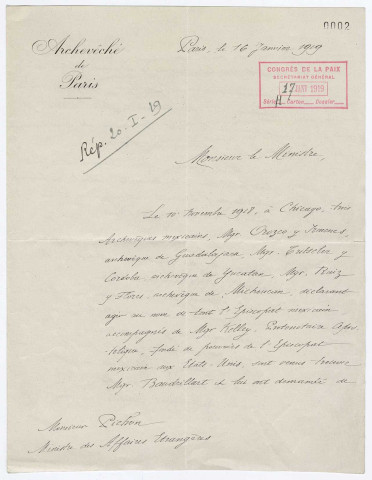 0002
Archevêché
de
Paris
Paris, le 16 Janvier 1919
CONGRÈS DE LA PAIX
SECRÉTARIAT GÉNÉRAL
17 JANV 1919
Série Carton Dossier
Rép. 20-I-19
Monsieur le Ministre,
Le 10 Novembre 1918, à Chicago, trois
Archevêques mexicains, Mgr Orozco y Jimenez,
archevêque de Guadalajara, Mgr Tritschler y
Cordoba archevêque de Yucatan, Mgr Ruiz
y Flores archevêque de Michoacan, déclarant
agir au nom de tout l'Episcopat mexicain
accompagnés de Mgr Kelley, Protonotaire Apos-
tolique, fondé de pouvoirs de l'Episcopat
mexicain aux Etats-Unis, sont venus trouver
Mgr Baudrillart et lui ont demandé de
Monsieur Pichon
Ministre des Affaires Etrangères